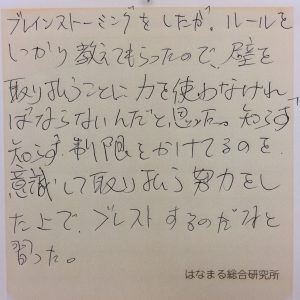 ブレインストーミングをしたが、ルールを
しっかり教えてもらったので、壁を
取り払うことに力を使わなければ
ばならないんだと思った。知らず
知らず制限をかけてるのを、
意識して取り払う努力をし
た上で、ブレストするのだネと
習った。
はなまる総合研究所